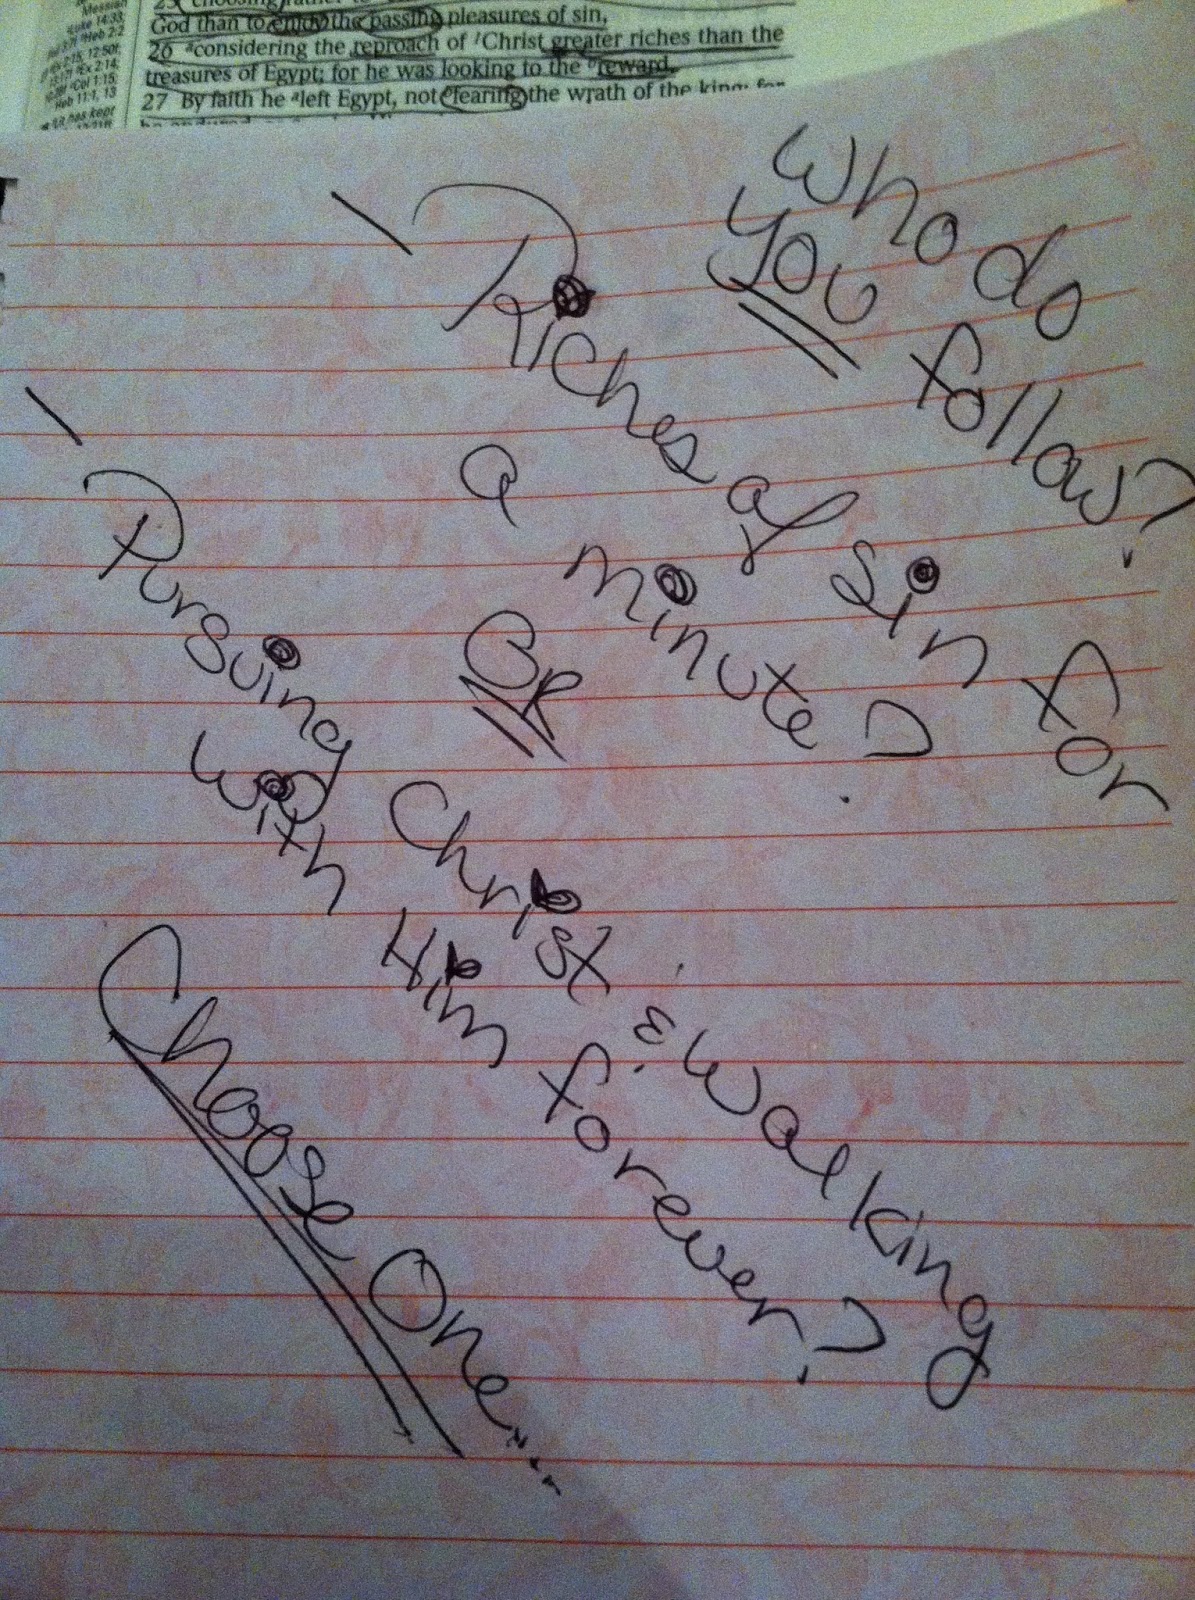 God than to enjoy the passing pleasures of sin,
26 considering the reproach of Christ greater riches than the
treasures of Egypt; for he was looking to the reward.
27 By faith he left Egypt, not fearing the wrath of the king; for
Who do
you follow?
- Riches of sin for
a minute?
OR
- Pursuing Christ & walking
with Him forever?
Choose One...